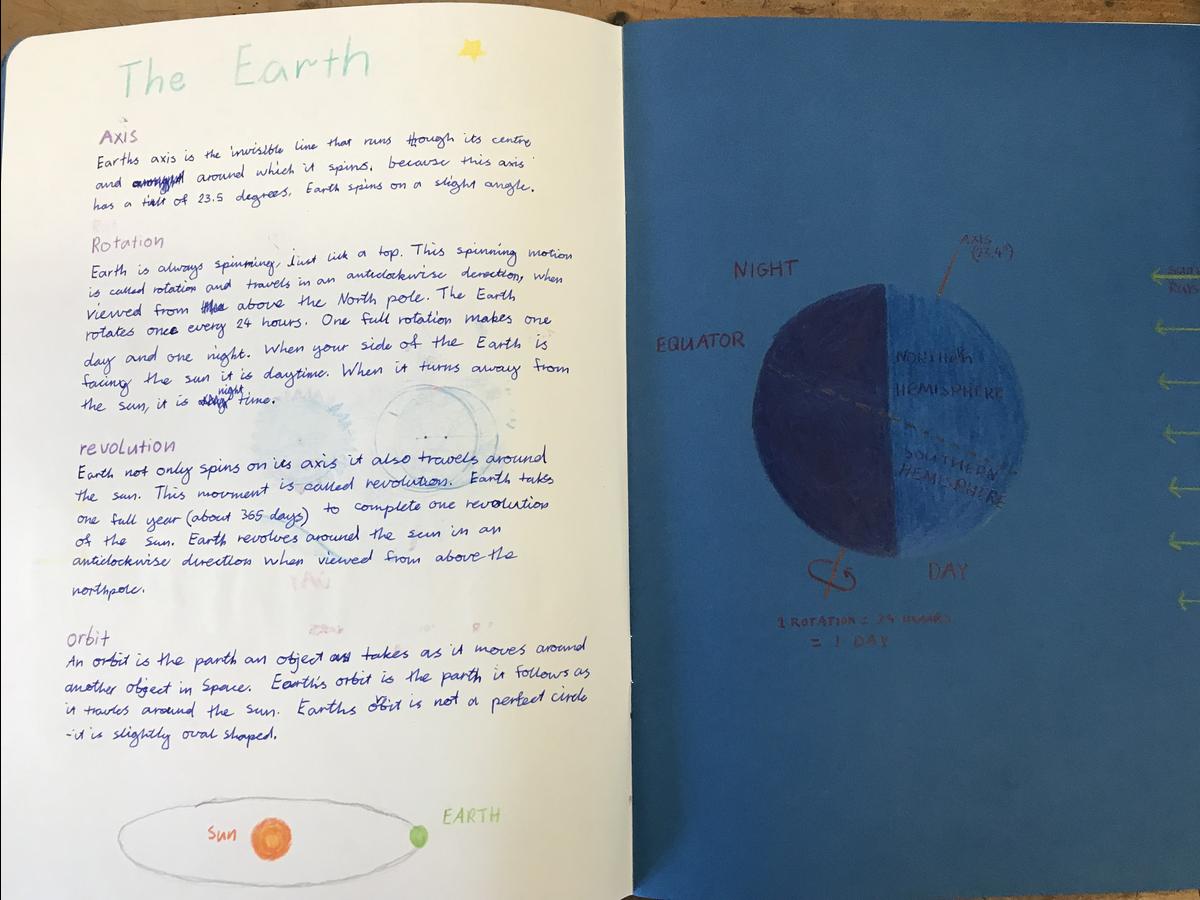 The Earth
Axis
Earths axis is the invisible line that runs though its centre
and around which it spins. because this axis
has a tilt of 23.5 degrees. Earth spins on a slight angle.
Rotation
Earth is always spinning, Just lick a top. This spinning motion
is called rotation and travels in an anticlockwise derection, when
viewed from above the North pole. The Earth
rotates once every 24 hours. One full rotation makes one
day and one night. When your side of the Earth is
facing the sun it is daytime. When it turns away from
the sun, it is night time.
revolution
Earth not only spins on its axis it also travels around
the sun. This movment is called revolution. Earth takes
one full year (about 365 days) to complete one revolution
of the sun. Earth revolves around the sun in an
anticlockwise direction when viewed from above the
northpole.
orbit
An orbit is the parth an object takes as it moves around
another object in Space. Earth's orbit is the parth it follows as
it travles around the sun. Earths orbit is not a perfect circle
-it is slightly oval shaped.
Sun
EARTH
AXIS
(23.4°)
NIGHT
EQUATOR
NORTHERN
HEMISPHERE
SOUTHERN
HEMISPHERE
DAY
1 ROTATION = 24 HOURS
= 1 DAY